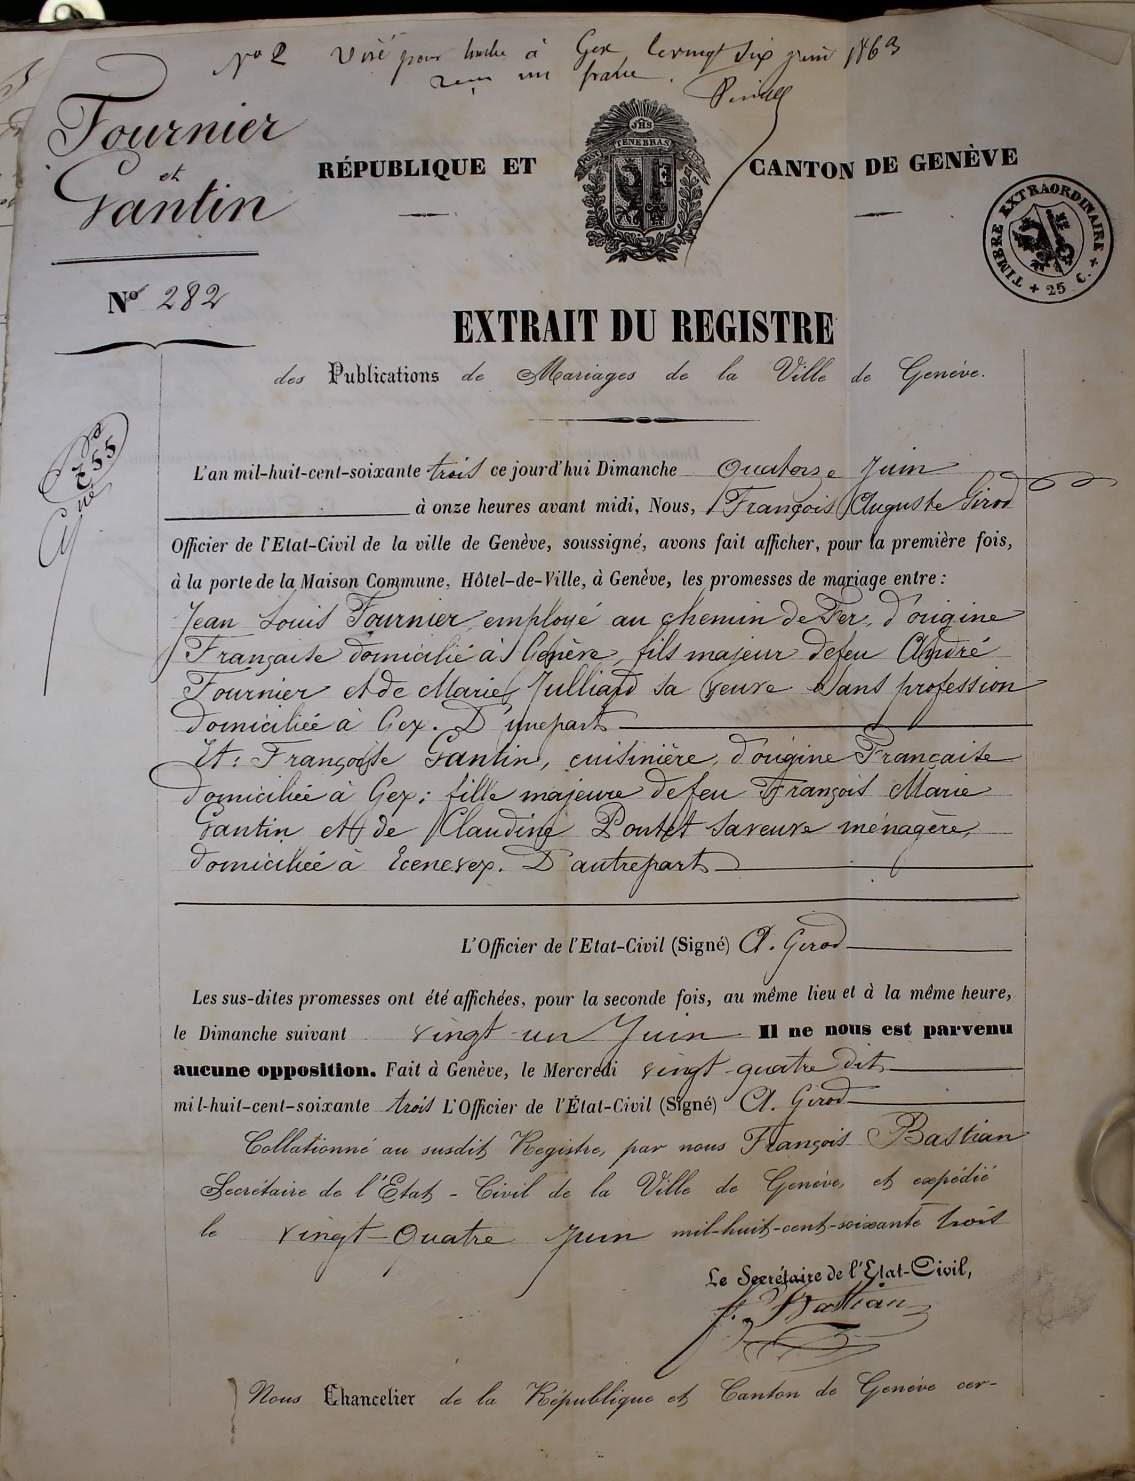 No 2 Visé pour timbre à Gex le vingt six juin 1863
reçu un franc.
Fournier
et
Gantin
RÉPUBLIQUE ET CANTON DE GENÈVE
JHS
TENEBRAS
TIMBRE EXTRAORDINAIRE
+ 25 C. +
No 282
EXTRAIT DU REGISTRE
des Publications de Mariages de la Ville de Genève.
L'an mil-huit-cent-soixante trois ce jourd'hui Dimanche Quatorze Juin
à onze heures avant midi, Nous, François Auguste Girod
Officier de l'Etat-Civil de la ville de Genève, soussigné, avons fait afficher, pour la première fois,
à la porte de la Maison Commune, Hôtel-de-Ville, à Genève, les promesses de mariage entre:
Jean Louis Fournier employé au chemin de Fer, d'origine
Française domicilié à Genève, fils majeur de feu André
Fournier et de Marie Julliard sa veuve sans profession
domiciliée à Gex. D'une part
Et: Françoise Gantin, cuisinière, d'origine Française
domiciliée à Gex; fille majeure de feu François Marie
Gantin et de Claudine Pontet sa veuve ménagère,
domiciliée à Ecenevex. D'autre part
L'Officier de l'Etat-Civil (Signé) A. Girod
Les sus-dites promesses ont été affichées, pour la seconde fois, au même lieu et à la même heure,
le Dimanche suivant vingt-un Juin Il ne nous est parvenu
aucune opposition. Fait à Genève, le Mercredi vingt-quatre dit
mil-huit-cent-soixante trois L'Officier de l'État-Civil (Signé) A. Girod
Collationné au susdit Registre, par nous François Bastian
Secrétaire de l'Etat-Civil de la Ville de Genève, et expédié
le vingt-Quatre Juin mil-huit-cent-soixante trois
Le Secrétaire de l'Etat-Civil,
f. Bastian
Nous Chancelier de la République et Canton de Genève cer-